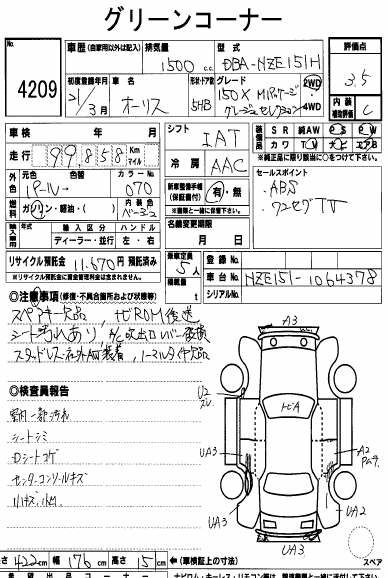 グリーンコーナー
No. 4209
車歴 (自家用以外は記入)
排気量 1500 c.c.
型式 DBA-NZE151H
評価点 3.5
初度登録年月 21/3月
車名 オーリス
形状・ドア数 5HB
グレード 150X Mパッケージ
2WD 4WD
内装 補助評価 C
車検 年 月
シフト IAT
装備品 SR 純AW PS PW
カワ TV
※純正品に限り該当に○をつけて下さい。
走行 99,858 Km マイル
冷房 AAC
外色 元色 色替
カラーNo. 070
新車整備手帳 (保証書付) 有・無
※書類と一緒に保管します。
セールスポイント
・ABS
・ワンセグTV
燃料 ガソリン・軽油・( )
内装色 ベージュ
名義変更期限 月 日
輸入車 輸入区分 ハンドル
ディーラー・並行 左・右
リサイクル預託金 11,670円 預託済み
※リサイクル料金に資金管理料金は含まれません。
乗車定員 5人
積載量 t
登録No.
車台No. NZE151-1064378
シリアルNo.
◎注意事項(修復・不具合箇所および状態等)
スペアキー欠品, ナビROM後送
シート汚れあり,
スタッドレス 社外AW装着, ノーマルタイヤ欠品
◎検査員報告
室内一部汚れ
シートシミ
Dシートコゲ
センターコンソールキズ
小キズ,
A3
U2
UA3
A2
UA3
UA2
UA3
スペア
長さ 422cm 幅 176cm 高さ 15cm ←(車検証上の寸法)